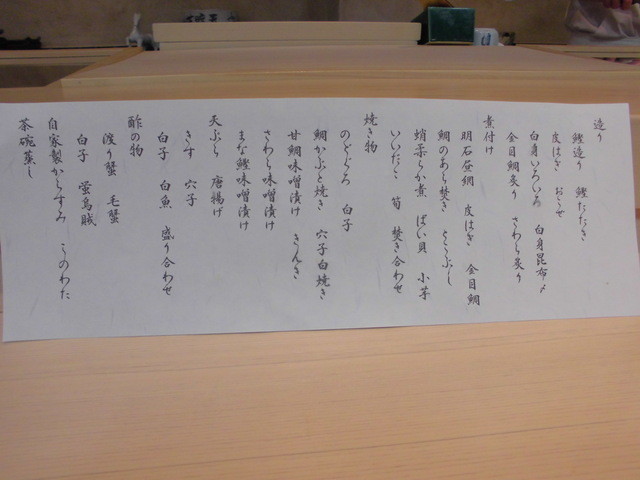 造り
鰹造り 鰹たたき
皮はぎ おこぜ
白身いろいろ 白身昆布〆
金目鯛炙り さわら炙り
煮付け
明石昼網 皮はぎ 金目鯛
鯛のあら焚き とこぶし
蛸柔らか煮 ばい貝 小芋
いいだこ 筍 焚き合わせ
焼き物
のどぐろ 白子
鯛かぶと焼き 穴子白焼き
甘鯛味噌漬け きんき
さわら味噌漬け
まな鰹味噌漬け
天ぷら 唐揚げ
きす 穴子
白子 白魚 盛り合わせ
酢の物
渡り蟹 毛蟹
白子 蛍烏賊
自家製からすみ このわた
茶碗蒸し